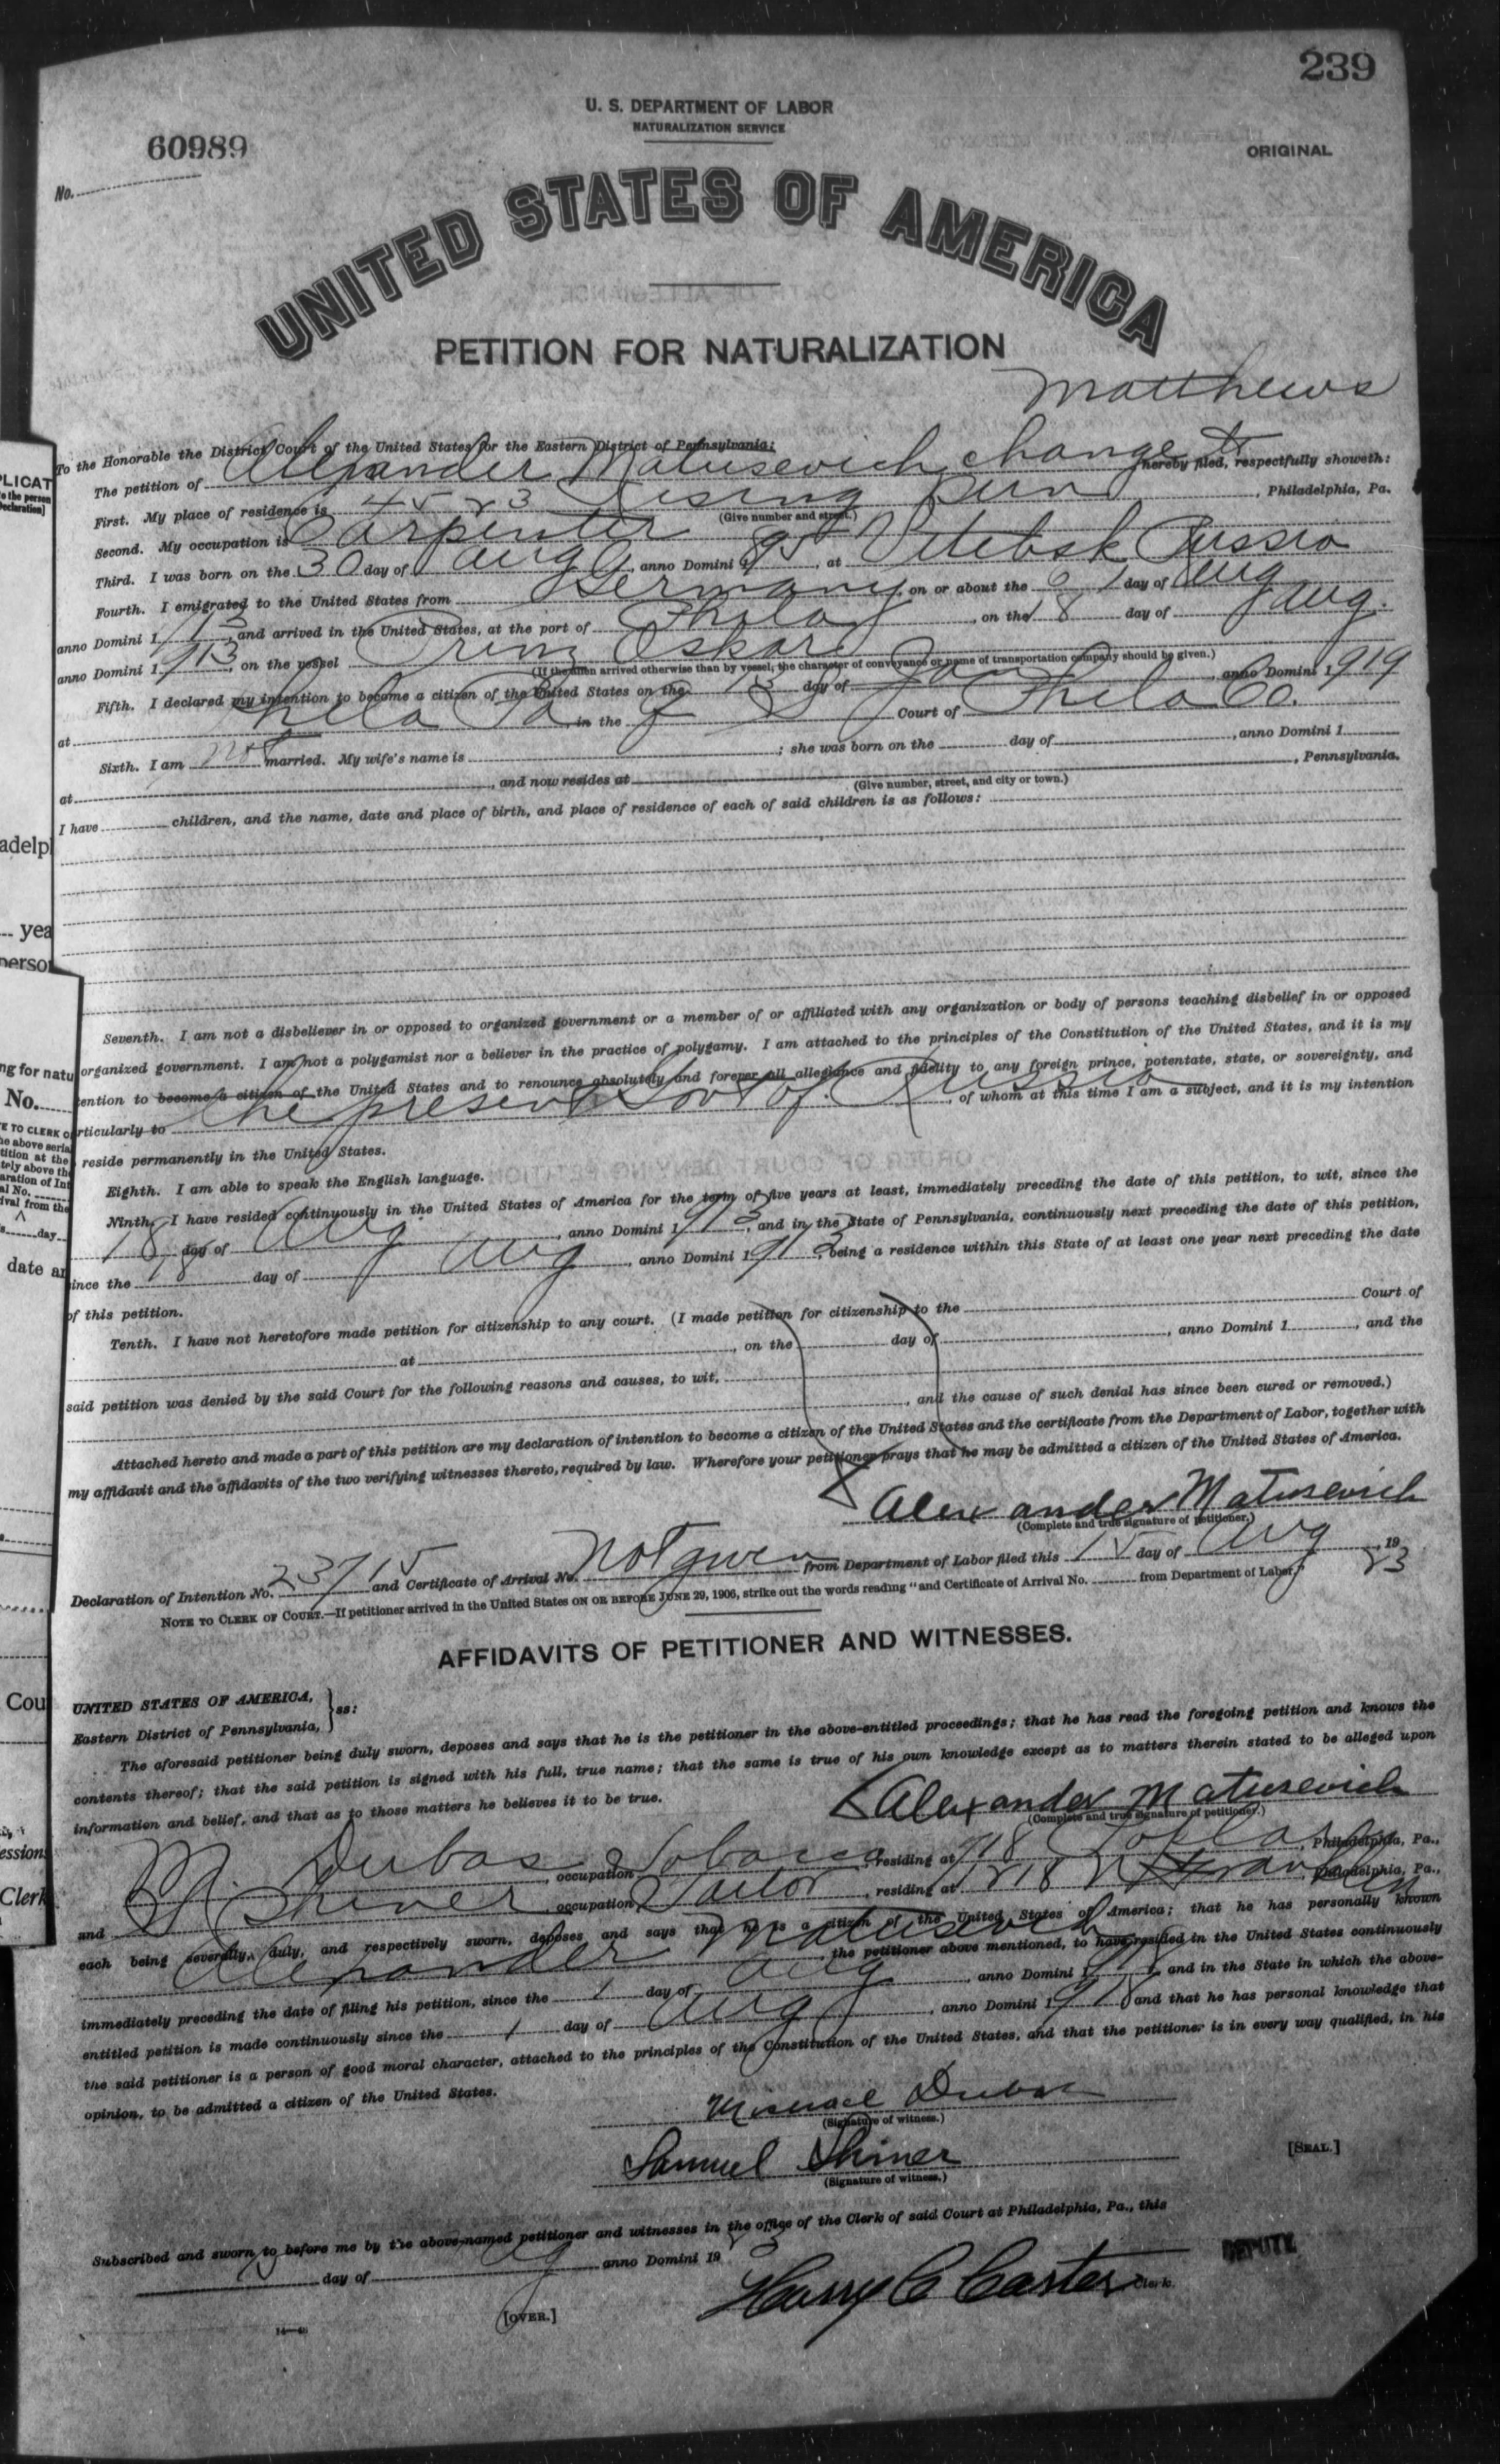 239
U. S. DEPARTMENT OF LABOR
NATURALIZATION SERVICE
60989
ORIGINAL
No.
UNITED STATES OF AMERICA
PETITION FOR NATURALIZATION
Matthews
To the Honorable the District Court of the United States for the Eastern District of Pennsylvania:
The petition of Alexander Matusevich, change to hereby filed, respectfully showeth:
First. My place of residence is 4523 Rising Sun, Philadelphia, Pa.
(Give number and street.)
Second. My occupation is Carpenter
Third. I was born on the 30 day of Aug, anno Domini 1895, at Vitebsk Russia
Fourth. I emigrated to the United States from Germany, on or about the 1 day of Aug
anno Domini 1913, and arrived in the United States, at the port of Phila, on the 18 day of Aug.
anno Domini 1913, on the vessel Prinz Oskar
(If the alien arrived otherwise than by vessel, the character of conveyance or name of transportation company should be given.)
Fifth. I declared my intention to become a citizen of the United States on the 13 day of Jan, anno Domini 1919
at Phila Pa, in the Q S Court of Phila Co.
Sixth. I am not married. My wife's name is ; she was born on the day of , anno Domini 1
at , and now resides at , Pennsylvania.
(Give number, street, and city or town.)
I have children, and the name, date and place of birth, and place of residence of each of said children is as follows:
Seventh. I am not a disbeliever in or opposed to organized government or a member of or affiliated with any organization or body of persons teaching disbelief in or opposed
organized government. I am not a polygamist nor a believer in the practice of polygamy. I am attached to the principles of the Constitution of the United States, and it is my
tention to become a citizen of the United States and to renounce absolutely and forever all allegiance and fidelity to any foreign prince, potentate, state, or sovereignty, and
rticularly to The present Govt of Russia, of whom at this time I am a subject, and it is my intention
reside permanently in the United States.
Eighth. I am able to speak the English language.
Ninth. I have resided continuously in the United States of America for the term of five years at least, immediately preceding the date of this petition, to wit, since the
18 day of Aug, anno Domini 1913, and in the State of Pennsylvania, continuously next preceding the date of this petition,
ince the 18 day of Aug, anno Domini 1913, being a residence within this State of at least one year next preceding the date
of this petition.
Tenth. I have not heretofore made petition for citizenship to any court. (I made petition for citizenship to the Court of
at , on the day of , anno Domini 1 , and the
said petition was denied by the said Court for the following reasons and causes, to wit,
, and the cause of such denial has since been cured or removed.)
Attached hereto and made a part of this petition are my declaration of intention to become a citizen of the United States and the certificate from the Department of Labor, together with
my affidavit and the affidavits of the two verifying witnesses thereto, required by law. Wherefore your petitioner prays that he may be admitted a citizen of the United States of America.
Alexander Matusevich
(Complete and true signature of petitioner.)
Declaration of Intention No. 23715 and Certificate of Arrival No. Not given from Department of Labor filed this 15 day of Aug, 1923
NOTE TO CLERK OF COURT.—If petitioner arrived in the United States ON OR BEFORE JUNE 29, 1906, strike out the words reading "and Certificate of Arrival No. from Department of Labor."
AFFIDAVITS OF PETITIONER AND WITNESSES.
UNITED STATES OF AMERICA,
Eastern District of Pennsylvania, } ss:
The aforesaid petitioner being duly sworn, deposes and says that he is the petitioner in the above-entitled proceedings; that he has read the foregoing petition and knows the
contents thereof; that the said petition is signed with his full, true name; that the same is true of his own knowledge except as to matters therein stated to be alleged upon
information and belief, and that as to those matters he believes it to be true.
Alexander Matusevich
(Complete and true signature of petitioner.)
M. Dubas, occupation Tobacco, residing at 718, Philadelphia, Pa.,
and S Shiner, occupation Tailor, residing at 1218 N Franklin, Philadelphia, Pa.,
each being severally, duly, and respectively sworn, deposes and says that he is a citizen of the United States of America; that he has personally known
Alexander Matusevich, the petitioner above mentioned, to have resided in the United States continuously
immediately preceding the date of filing his petition, since the 1 day of Aug, anno Domini 1918, and in the State in which the above-
entitled petition is made continuously since the 1 day of Aug, anno Domini 1918 and that he has personal knowledge that
the said petitioner is a person of good moral character, attached to the principles of the Constitution of the United States, and that the petitioner is in every way qualified, in his
opinion, to be admitted a citizen of the United States.
Michael Dubas
(Signature of witness.)
Samuel Shiner
(Signature of witness.)
[SEAL.]
Subscribed and sworn to before me by the above-named petitioner and witnesses in the office of the Clerk of said Court at Philadelphia, Pa., this
15 day of Aug anno Domini 1923
Harry C Carter Clerk.
DEPUTY
[OVER.]